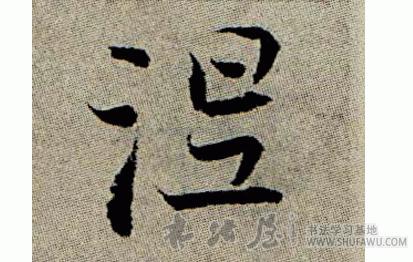 涅
书法屋
书法学习基地
WWW.SHUFAWU.COM